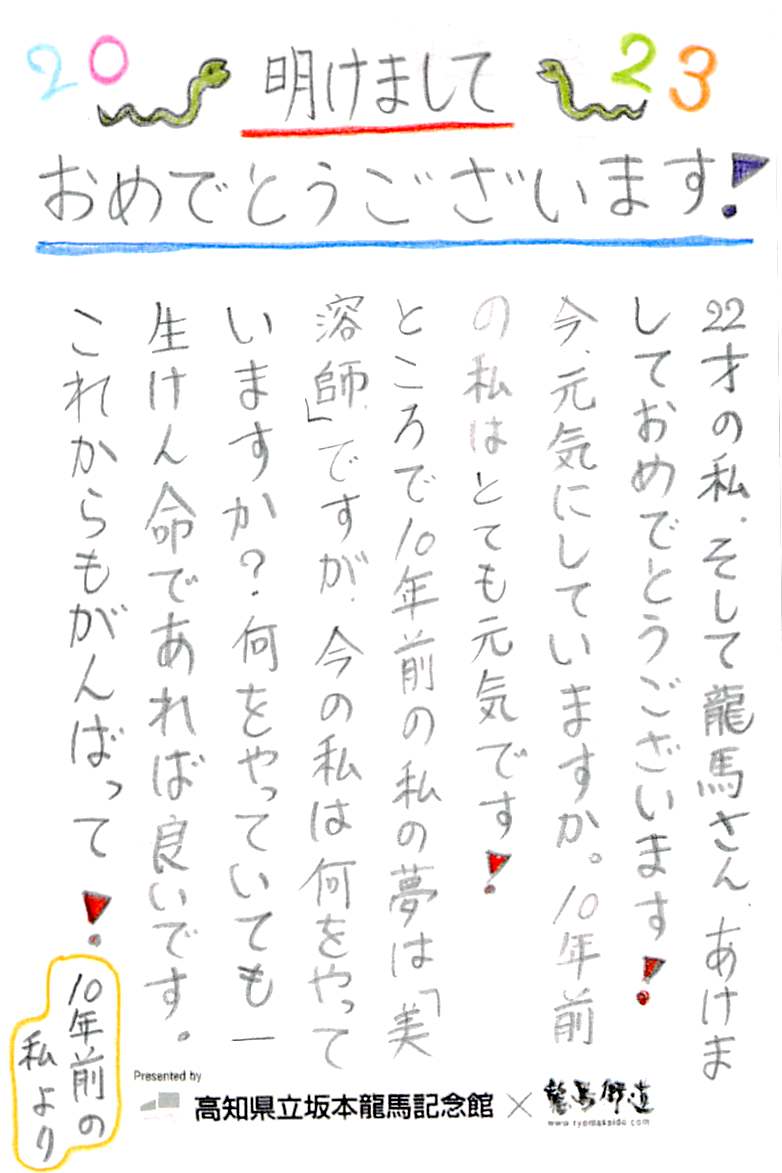 2023
明けまして
おめでとうございます!
22才の私.そして龍馬さん.あけま
しておめでとうございます!
今、元気にしていますか。10年前
の私はとても元気です!
ところで10年前の私の夢は「美
溶師」ですが、今の私は何をやって
いますか?何をやっていても一
生けん命であれば良いです。
これからもがんばって!
10年前の
私より
Presented by
高知県立坂本龍馬記念館×龍馬街道
www.ryomakaido.com